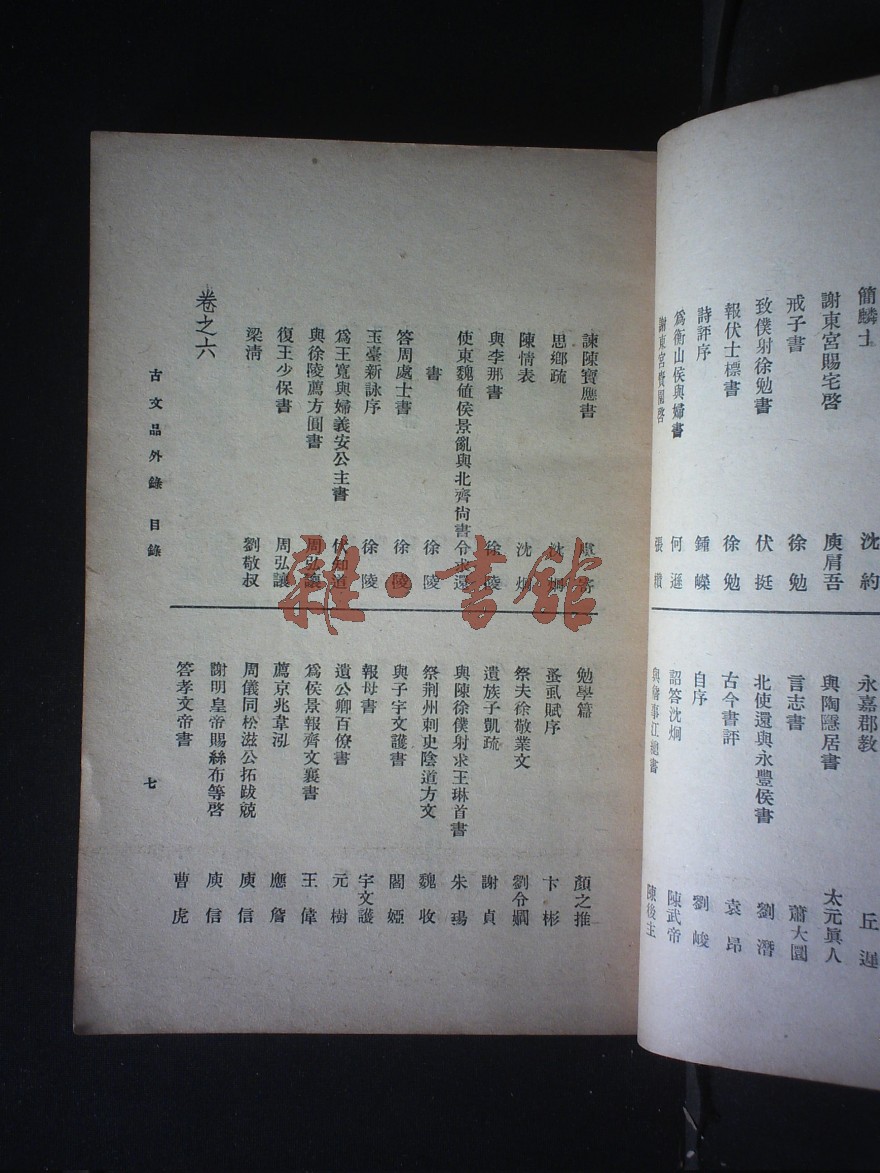 簡麟士 沈約
謝東宮賜宅啓 庾肩吾
戒子書 徐勉
致僕射徐勉書 伏挺
報伏士標書 徐勉
詩評序 鍾嶸
爲衡山侯與婦書 何遜
謝東宮賚園啓 張纘
永嘉郡教 丘遲
與陶隱居書 太元眞人
言志書 蕭大圜
北使還與永豐侯書 劉潛
古今書評 袁昂
自序 劉峻
詔答沈炯 陳武帝
與詹事江總書 陳後主
諫陳寶應書 虞寄
思鄉疏 沈炯
陳情表 沈炯
與李那書 徐陵
使東魏値侯景亂與北齊尙書令求還
書 徐陵
答周處士書 徐陵
玉臺新詠序 徐陵
爲王寬與婦義安公主書 伏知道
與徐陵薦方圓書 周弘讓
復王少保書 周弘讓
梁淸 劉敬叔
卷之六
勉學篇 顏之推
蚤虱賦序 卞彬
祭夫徐敬業文 劉令嫺
遺族子凱疏 謝貞
與陳徐僕射求王琳首書 朱瑒
祭荆州刺史陰道方文 魏收
與子宇文護書 閻姬
報母書 宇文護
遺公卿百僚書 元樹
爲侯景報齊文襄書 王偉
薦京兆韋泓 應詹
周儀同松滋公拓跋兢 庾信
謝明皇帝賜絲布等啓 庾信
答孝文帝書 曹虎
古文品外錄 目錄
七
雜·書館